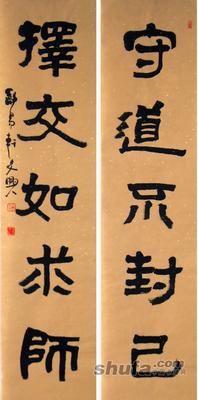 守道不封己
擇交如求師
shufa.com